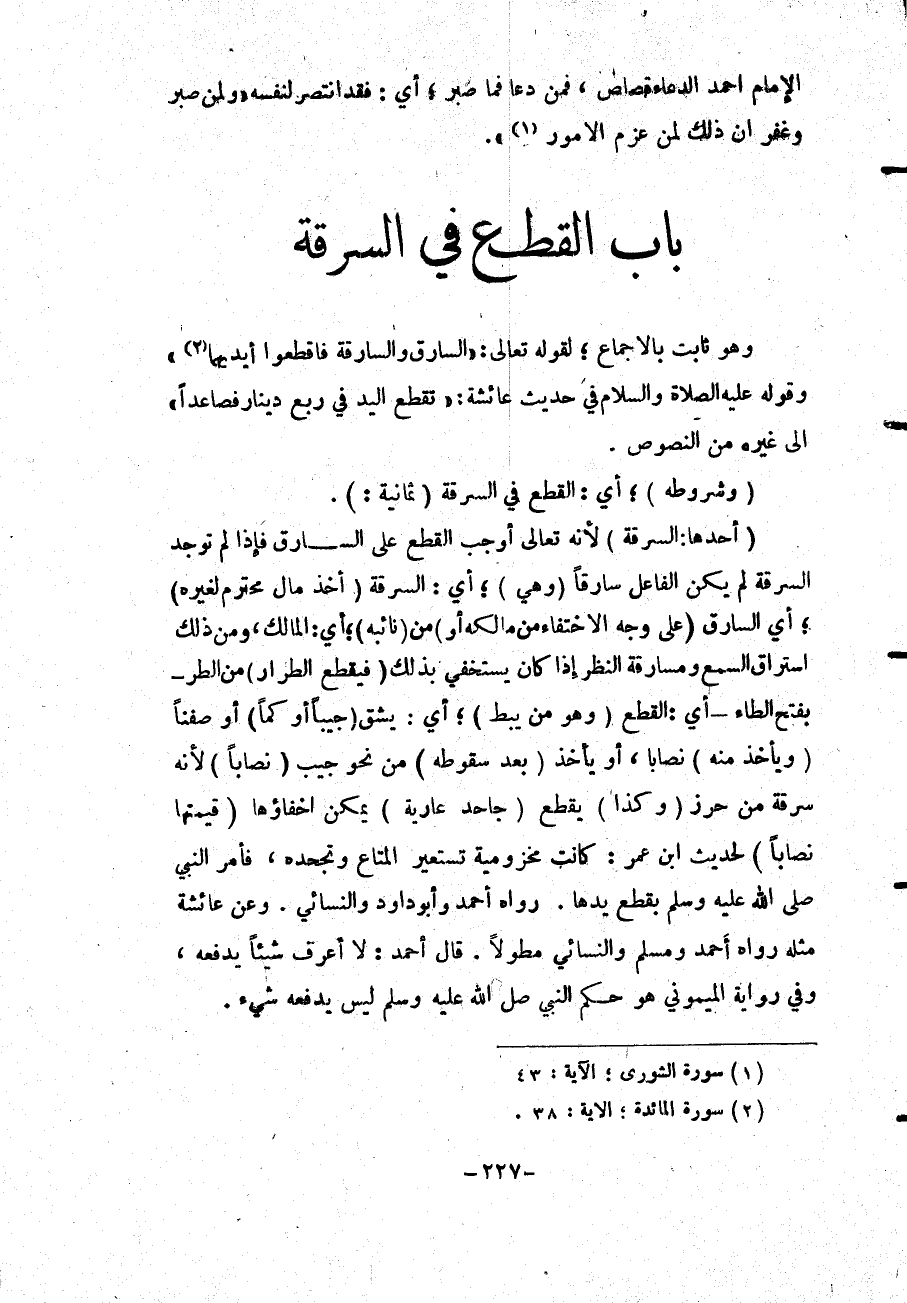 الإمام احمد الدعاء قصاص ، فمن دعا فما صبر ؛ أي : فقد انتصر لنفسه «ولمن صبر
وغفر ان ذلك لمن عزم الامور (١) » .
باب القطع في السرقة
وهو ثابت بالاجماع ؛ لقوله تعالى : «السارق والسارقة فاقطعوا أيديهما (٢) »
وقوله عليه الصلاة والسلام في حديث عائشة : « تقطع اليد في ربع دينار فصاعداً »
الى غيره من النصوص .
( وشروطه ) ؛ أي : القطع في السرقة ( ثمانية : ) .
( أحدها : السرقة ) لأنه تعالى أوجب القطع على الســـارق فإذا لم توجد
السرقة لم يكن الفاعل سارقاً (وهي ) ؛ أي : السرقة ( أخذ مال محترم لغيره)
؛ أي السارق (على وجه الاختفاء من مالكه أو) من (نائبه) ؛ أي : المالك ، ومن ذلك
استراق السمع ومسارقة النظر إذا كان يستخفي بذلك ( فيقطع الطرار ) من الطر ـ
بفتح الطاء ـ أي : القطع ( وهو من يبط ) ؛ أي : يشق (جيباً أو كماً) أو صفناً
( ويأخذ منه ) نصابا ، أو يأخذ ( بعد سقوطه ) من نحو جيب ( نصاباً ) لأنه
سرقة من حرز ( وكذا ) يقطع ( جاحد عارية ) يمكن اخفاؤها ( قيمتها
نصاباً ) لحديث ابن عمر : كانت مخزومية تستعير المتاع وتجحده ، فأمر النبي
صلى الله عليه وسلم بقطع يدها . رواه أحمد وأبو داود والنسائي . وعن عائشة
مثله رواه أحمد ومسلم والنسائي مطولاً . قال أحمد : لا أعرف شيئاً يدفعه ،
وفي رواية الميموني هو حكم النبي صل الله عليه وسلم ليس يدفعه شيء .
(١) سورة الشورى ؛ الآية : ٤٣
(٢) سورة المائدة ؛ الاية : ٣٨ .
-٢٢٧-